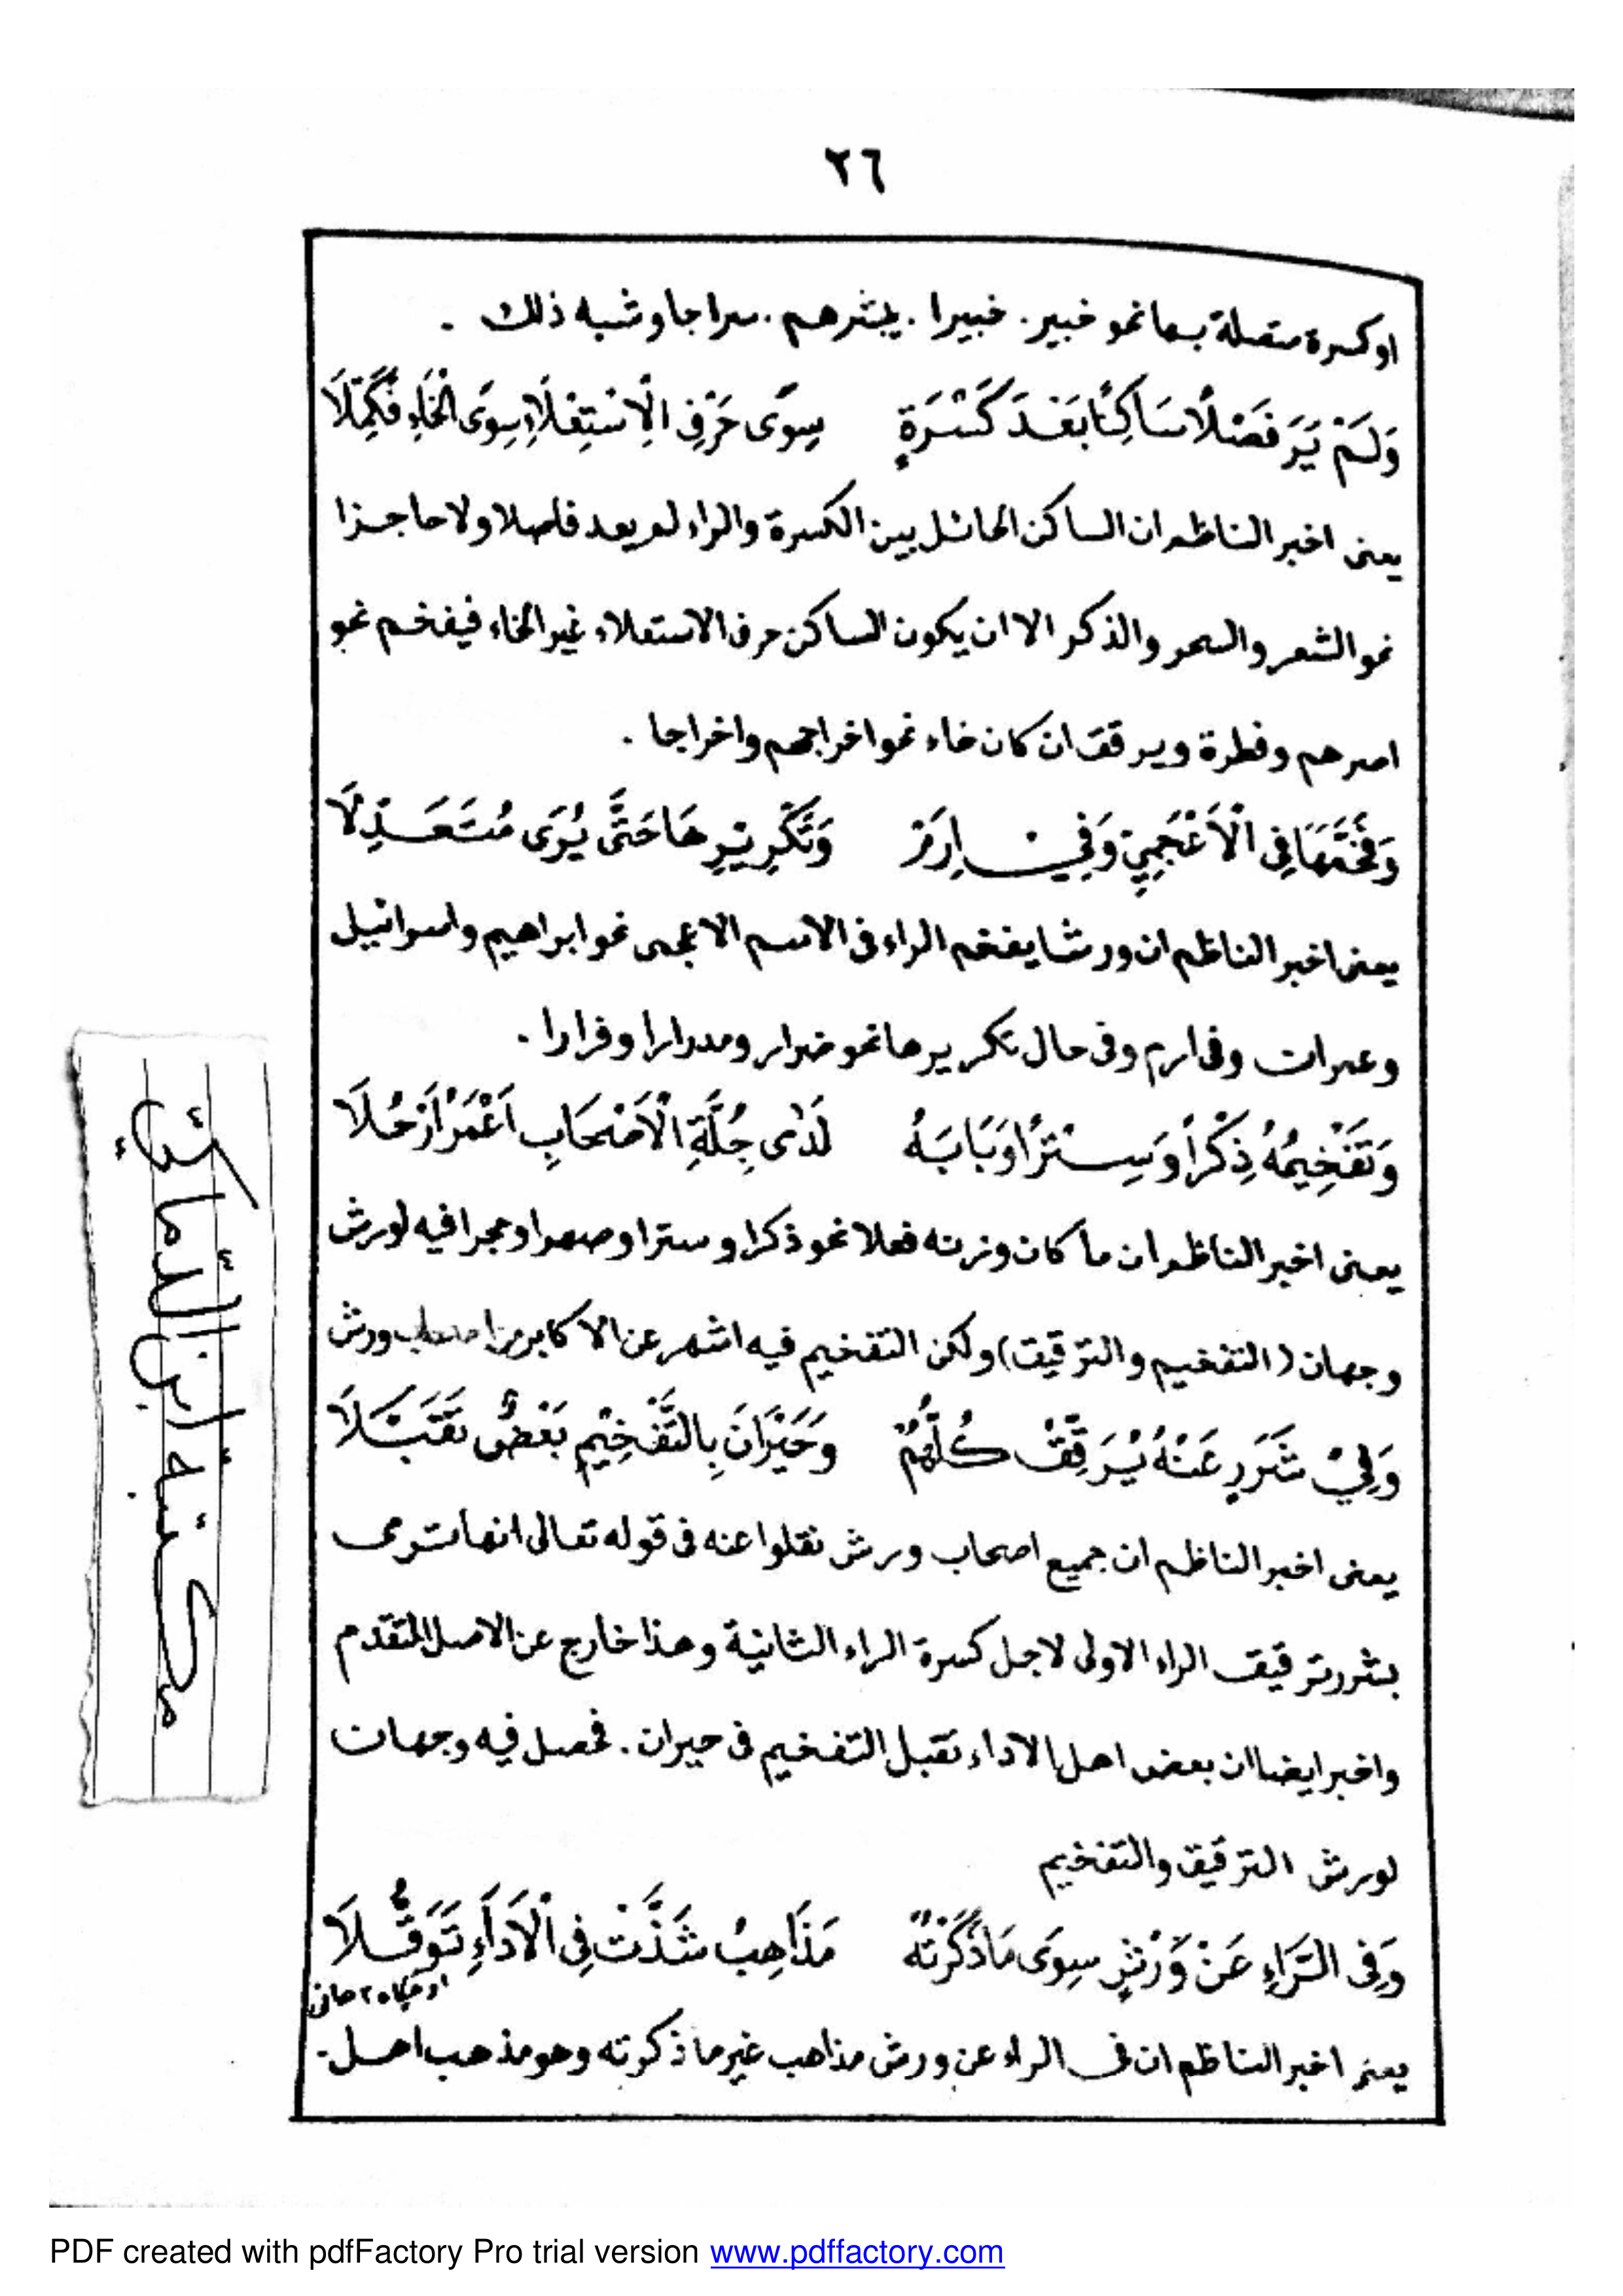 ٢٦
او كسرة متصلة بها نحو خبير . خبيرا . يبشرهم . سراجا وشبه ذلك .
وَلَمْ يَرَ فَصْلًا سَاكِنًا بَعْدَ كَسْرَةٍ سِوَى حَرْفِ الْاِسْتِعْلَاءِ سِوَى الْخَاءِ فَكَمَّلَا
يعنى اخبر الناظم ان الساكن الحائل بين الكسرة والراء لم يعد فاصلا ولا حاجزا
نحو الشعر والسحر والذكر الا ان يكون الساكن حرف الاستعلاء غير الخاء فيفخم نحو
اصرهم وفطرة ويرقق ان كان خاء نحو اخراجهم واخراجا .
وَفَخَّمَهَا فِى الْاَعْجَمِيِّ وَفِيْ اِرَمْ وَتَكْرِيْرِهَا حَتَّى يُرَى مُتَعَدِّلَا
يعنى اخبر الناظم ان ورشا يفخم الراء فى الاسم الاعجمى نحو ابراهيم واسرائيل
وعمران وفى ارم وفى حال تكريرها نحو ضرار ومدرارا وفرارا .
وَتَفْخِيْمُهُ ذِكْرًا وَسِتْرًا وَبَابَهُ لَدٰى جِلَّةِ الْاَصْحَابِ اَعْمَرُ اَرْحُلَا
يعنى اخبر الناظم ان ما كان وزنه فعلا نحو ذكرا وسترا وصهرا وحجرا فيه لورش
وجهان (التفخيم والترقيق) ولكن التفخيم فيه اشهر عن الاكابر من اصحاب ورش
وَفِيْ شَرَرٍ عَنْهُ يُرَقِّقُ كُلُّهُمْ وَحَيْرَانَ بِالتَّفْخِيْمِ بَعْضٌ تَقَبَّلَا
يعنى اخبر الناظم ان جميع اصحاب ورش نقلوا عنه فى قوله تعالى انها ترمى
بشرر ترقيق الراء الاولى لاجل كسرة الراء الثانية وهذا خارج عن الاصل المتقدم
واخبر ايضا ان بعض اهل الاداء تقبل التفخيم فى حيران . فحصل فيه وجهان
لورش الترقيق والتفخيم
وَفِى الرَّاءِ عَنْ وَرْشٍ سِوَى مَا ذَكَرْتُهُ مَذَاهِبُ شَذَّتْ فِى الْاَدَاءِ تَوَقُّلَا
يعنى اخبر الناظم ان فى الراء عن ورش مذاهب غير ما ذكرته وهو مذهب اهل
مكتبة ابن الدماك
PDF created with pdfFactory Pro trial version www.pdffactory.com